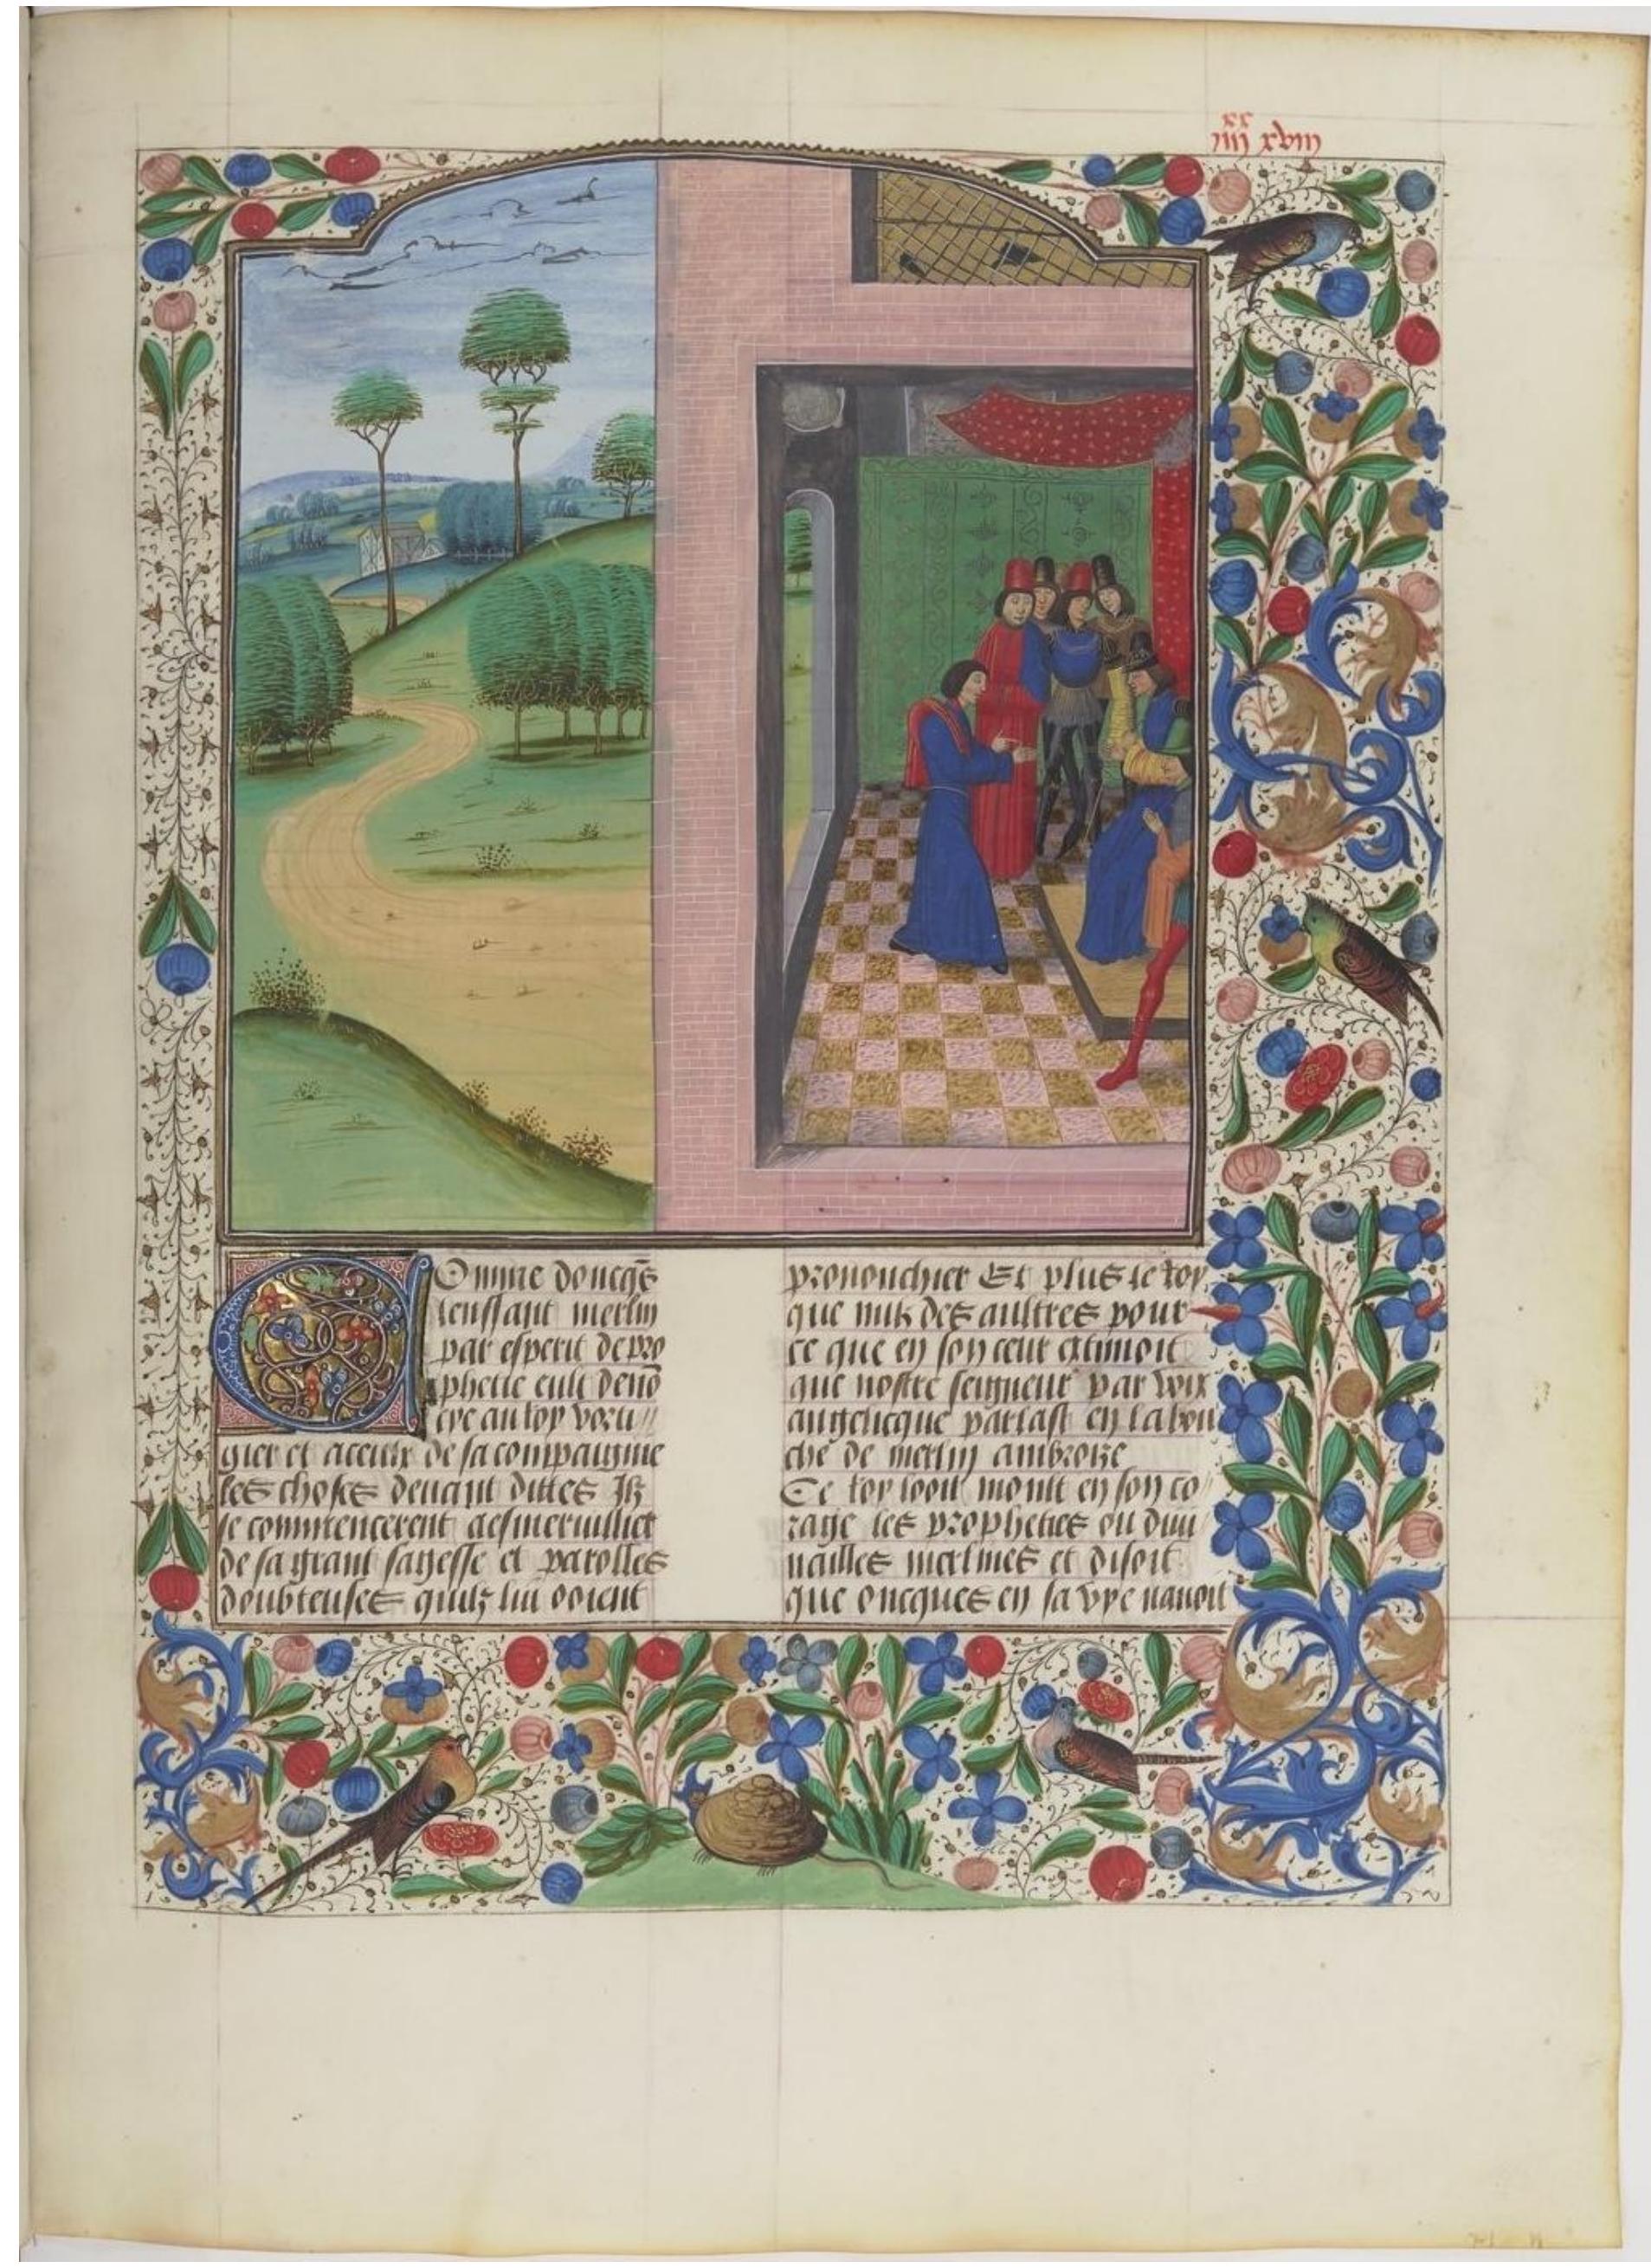 xx
iiii xviii
Comme doncq̄s
lenffant merlin
par esperit de pro
phecie eult denō
cye au roy vorti//
gier et a ceulx de sa compaignie
les choses devant dittes Ilz
se commencerent a esmerviellier
de sa grant sagesse et parolles
doubteuses quilz lui ooient
prononchier Et plus le Roy
que nulz des aultres pour
ce que en son ceur extimoit
que nostre seigneur par voix
angelicque parlast en la bou
che de merlin ambroize
Ce roy looit moult en son co//
rage les propheties ou divi//
nailles merlines et disoit
que oncques en sa vye navoit